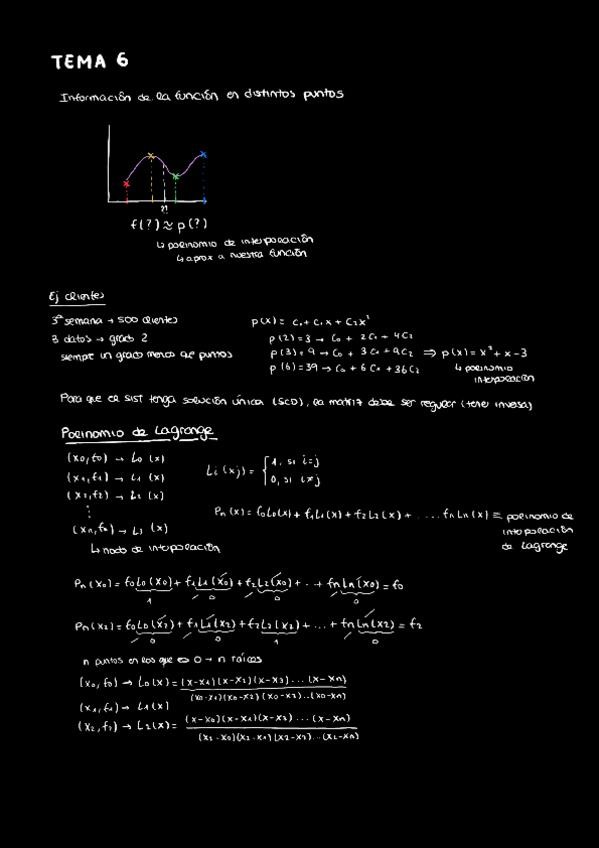 TEMA 6
Información de la función en distintos puntos
??
f(?) ≈ p(?)
↳ polinomio de interpolación
↳ aprox a nuestra función
Ej clientes
3ª semana → 500 clientes
3 datos → grado 2
siempre un grado menos que puntos
p(x) = C₀ + C₁x + C₂x²
p(2) = 3 → C₀ + 2C₁ + 4C₂
p(3) = 9 → C₀ + 3C₁ + 9C₂ ⇒ p(x) = x² + x - 3
p(6) = 39 → C₀ + 6C₁ + 36C₂
↳ polinomio
interpolación
Para que el sist tenga solución única (SCD), la matriz debe ser regular (tener inversa)
Polinomio de Lagrange
(x₀, f₀) → L₀ (x)
(x₁, f₁) → L₁ (x)
(x₂, f₂) → L₂ (x)
⋮
(xn, fn) → L (x)
↳ nodo de interpolación
Li (xj) = { 1, si i=j
0, si i≠j
Pn (x) = f₀L₀(x) + f₁L₁(x) + f₂L₂(x) + .... fn Ln (x) ≡ polinomio de
interpolación
de Lagrange
Pn (x₀) = f₀L₀(x₀) + f₁L₁(x₀) + f₂L₂(x₀) + .. + fnLn(x₀) = f₀
1 0 0 0
Pn (x₂) = f₀L₀(x₂) + f₁L₁(x₂) + f₂L₂(x₂) + ... + fnLn(x₂) = f₂
0 0 1 0
n puntos en los que es 0 → n raíces
(x₀, f₀) → L₀(x) = (x-x₁)(x-x₂)(x-x₃)...(x-xn)
(x₀-x₁)(x₀-x₂)(x₀-x₃)...(x₀-xn)
(x₁, f₁) → L₁(x)
(x₂, f₂) → L₂(x) = (x-x₀)(x-x₁)(x-x₃)...(x-xn)
(x₂-x₀)(x₂-x₁)(x₂-x₃)...(x₂-xn)